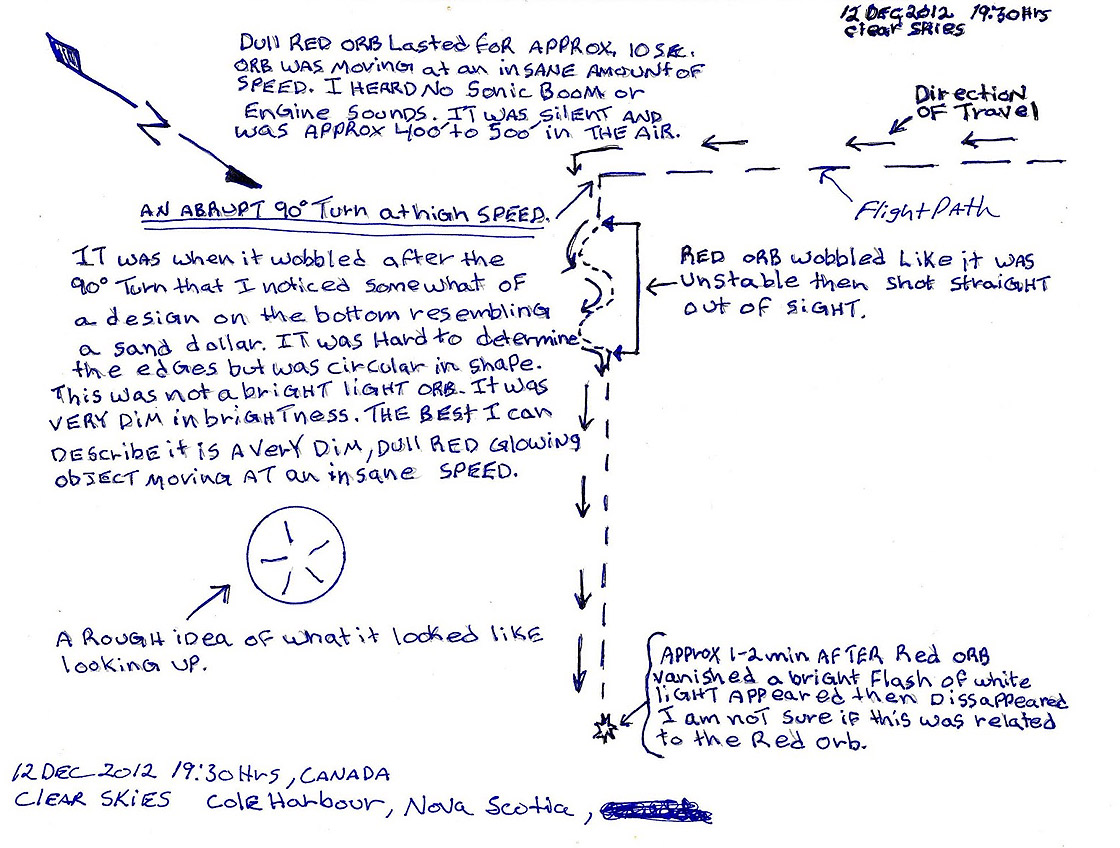 12 DEC 2012 19:30 Hrs
Clear Skies
Dull RED ORB Lasted FOR APPROX. 10 SEC.
ORB WAS MOVING at an inSANE AMOUNT OF
SPEED. I HEARD NO Sonic BOOM or
ENGINE SOUNDS. IT WAS SILENT AND
WAS APPROX 400' to 500' in THE AIR.
Direction
OF Travel
AN ABRUPT 90° Turn at high SPEED.
Flight PATH
IT was when it wobbled after the
90° Turn that I noticed somewhat of
a design on the bottom resembling
a sand dollar. IT was Hard to determine
the edges but was circular in shape.
This was not a briGHT liGHT ORB. It was
VERY DiM in briGHTness. THE BEST I can
DEScribe it is A VerY Dim, Dull RED Glowing
OBJECT MOVING AT an insane SPEED.
RED ORB wobbled Like it was
Unstable then shot straiGHT
out of SiGHT.
A ROUGH iDEA of what it looked liKE
looking UP.
APProx 1-2 min AFTER Red ORB
vanished a bright Flash of white
liGHT APPeared then DissaPPeared
I am not sure if this was related
to the Red Orb.
12 DEC 2012 19:30 Hrs, CANADA
CLEAR SKIES Cole Harbour, Nova Scotia,